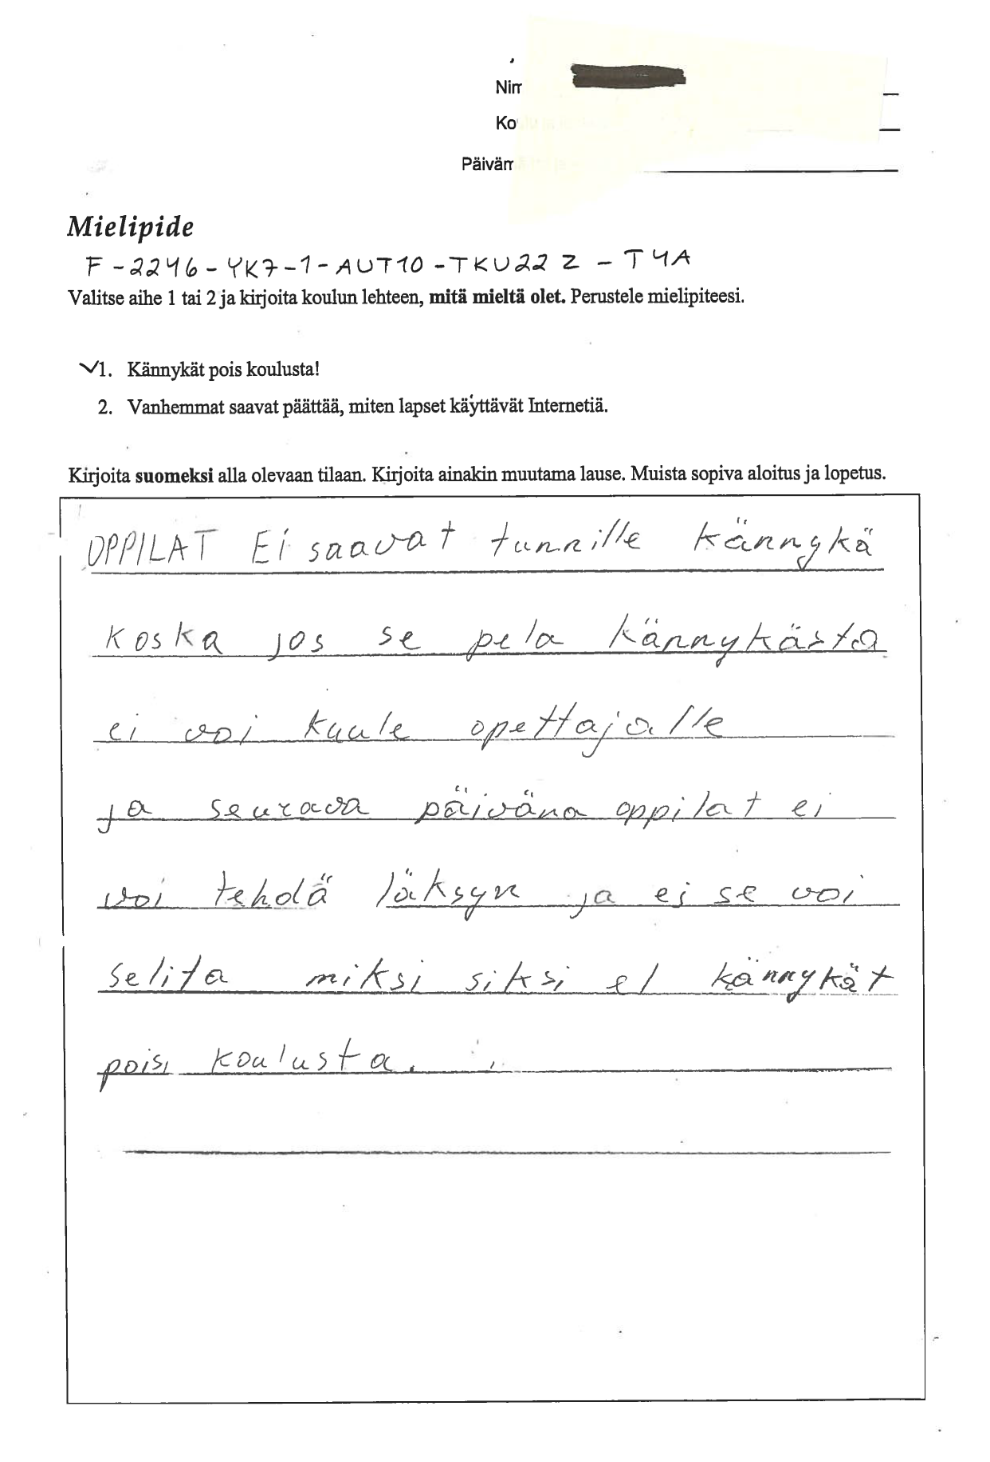 Nim
Ko
Päiväm
Mielipide
F-2246-YK7-1-AUT10-TKU22Z-T4A
Valitse aihe 1 tai 2 ja kirjoita koulun lehteen, mitä mieltä olet. Perustele mielipiteesi.
✓1. Kännykät pois koulusta!
2. Vanhemmat saavat päättää, miten lapset käyttävät Internetiä.
Kirjoita suomeksi alla olevaan tilaan. Kirjoita ainakin muutama lause. Muista sopiva aloitus ja lopetus.
OPPILAT Ei saavat tunnille kännykä
koska jos se pela kännykästa
ei voi kuule opettajalle
ja seurava päiväna oppilat ei
voi tehdä läksyn ja ei se voi
selita miksi siksi el kännykät
pois koulusta.